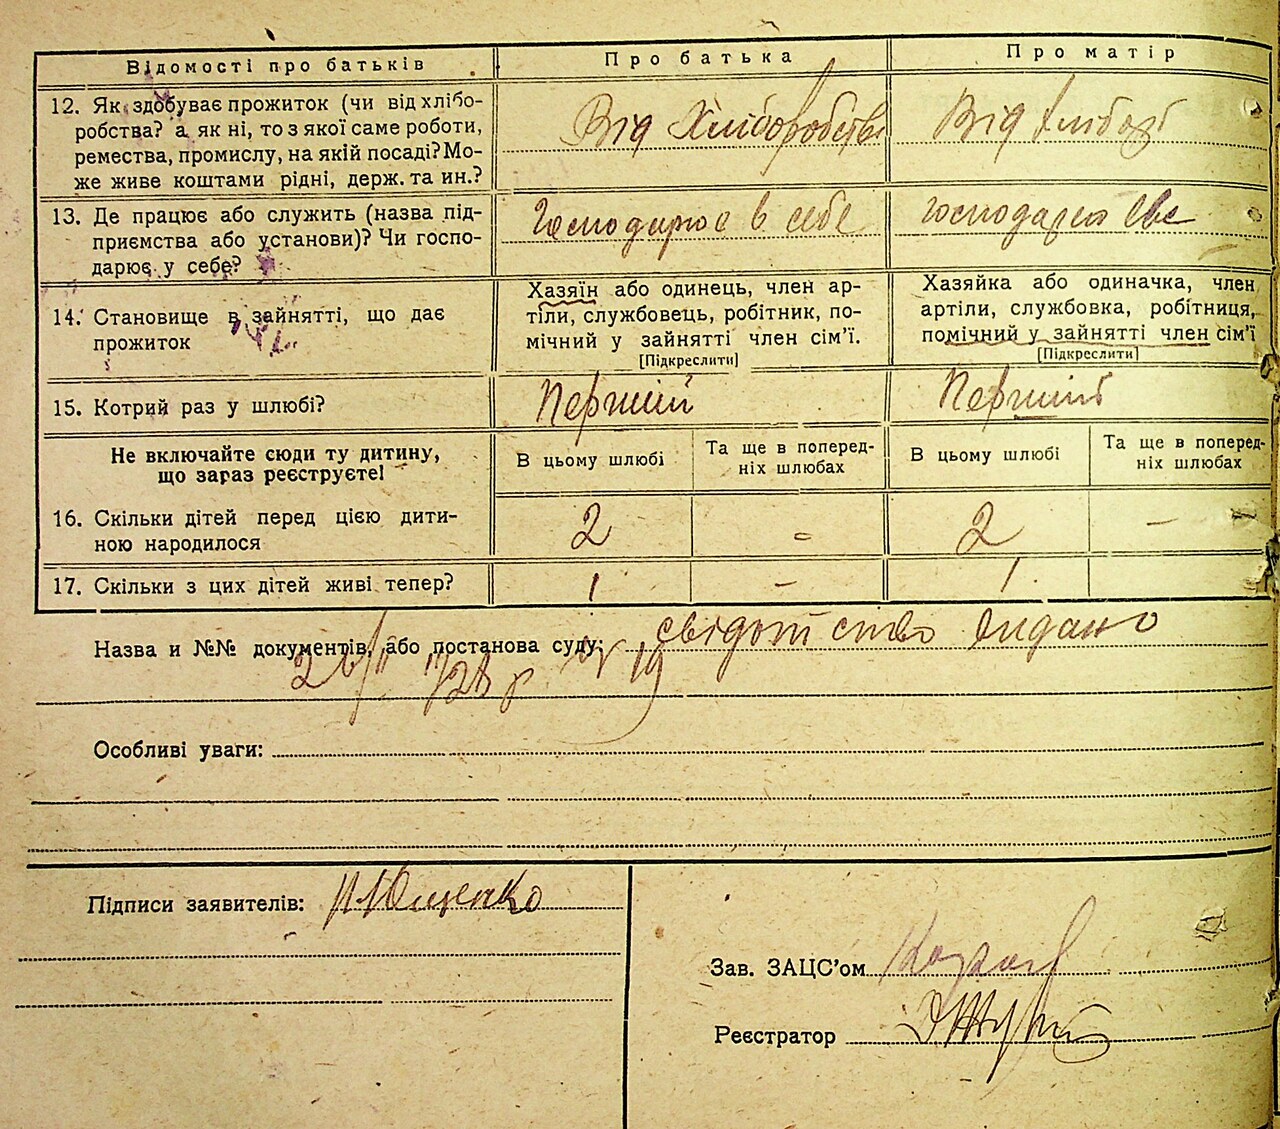 Відомості про батьків
Про батька
Про матір
12. Як здобуває прожиток (чи від хлібо-
робства? а як ні, то з якої саме роботи,
ремества, промислу, на якій посаді? Мо-
же живе коштами рідні, держ. та ин.?
Від Хліборобства
Від
13. Де працює або служить (назва під-
приємства або установи)? Чи госпо-
дарює у себе?
Господарює в себе
14. Становище в зайнятті, що дає
прожиток
Хазяїн або одинець, член ар-
тіли, службовець, робітник, по-
мічний у зайнятті член сім’ї.
[Підкреслити]
Хазяйка або одиначка, член
артіли, службовка, робітниця,
помічний у зайнятті член сім’ї
[Підкреслити]
15. Котрий раз у шлюбі?
Перший
Перший
Не включайте сюди ту дитину,
що зараз реєструєте!
В цьому шлюбі
Та ще в поперед-
ніх шлюбах
В цьому шлюбі
Та ще в поперед-
ніх шлюбах
16. Скільки дітей перед цією дити-
ною народилося
2
-
2
-
17. Скільки з цих дітей живі тепер?
1
-
1
Назва и №№ документів, або постанова суду: свідотство видано
№ 19
Особливі уваги:
Підписи заявителів: Ющенко
Зав. ЗАЦС’ом
Реєстратор